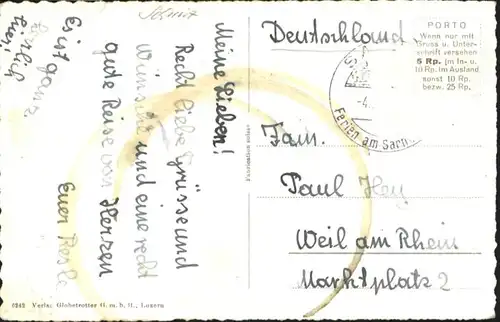 Schweiz
Meine Lieben!
Recht liebe Grüsse und
wünsche und eine recht
gute Reise von Herzen
Euer
Es ist ganz
herrlich
hier.
Fabrication suisse
6243 Verlag Globetrotter G. m. b. H., Luzern
Deutschland
PORTO
Wenn nur mit
Gruss u. Unter-
schrift versehen
5 Rp. im In- u.
10 Rp. im Ausland
sonst 10 Rp.
bezw. 25 Rp.
Ferien am Sarn
Fam.
Paul Hey
Weil am Rhein
Marktplatz 2